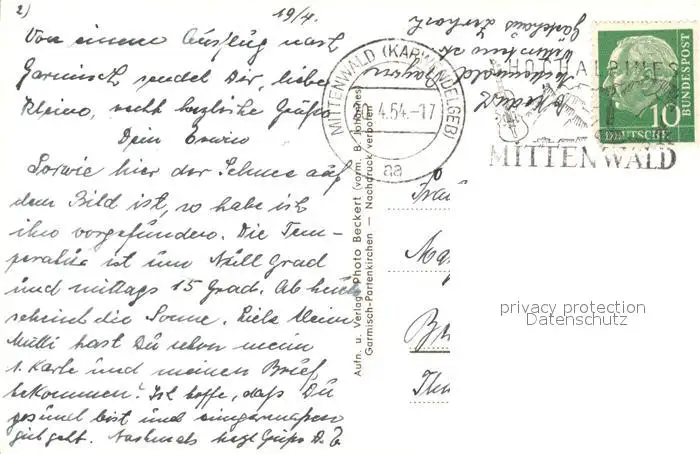 2) 19/4.
Von einem Ausflug nach
Garmisch sendet Dir, liebe
Kleine, recht herzliche Grüße
Dein Erwin
So wie hier der Schnee auf
dem Bild ist, so habe ich
ihn vorgefunden. Die Tem-
peratur ist um Null Grad
und mittags 15 Grad. Ab heute
scheint die Sonne. Liebe kleine
Mutti hast Du schon meine
1. Karte und meinen Brief
bekommen? Ich hoffe, daß Du
gesund bist und einigermaßen
gut geht. Nochmals herzl. Grüße D. E
Aufn. u. Verlag Photo Beckert (vorm. B. Johannes)
Garmisch-Partenkirchen — Nachdruck verboten
MITTENWALD (KARWENDELGEB)
20.4.54.-17
aa
HOCHALPINES
MITTENWALD
10
DEUTSCHE
BUNDESPOST
Mittenwald
Gästehaus
Frau
privacy protection
Datenschutz